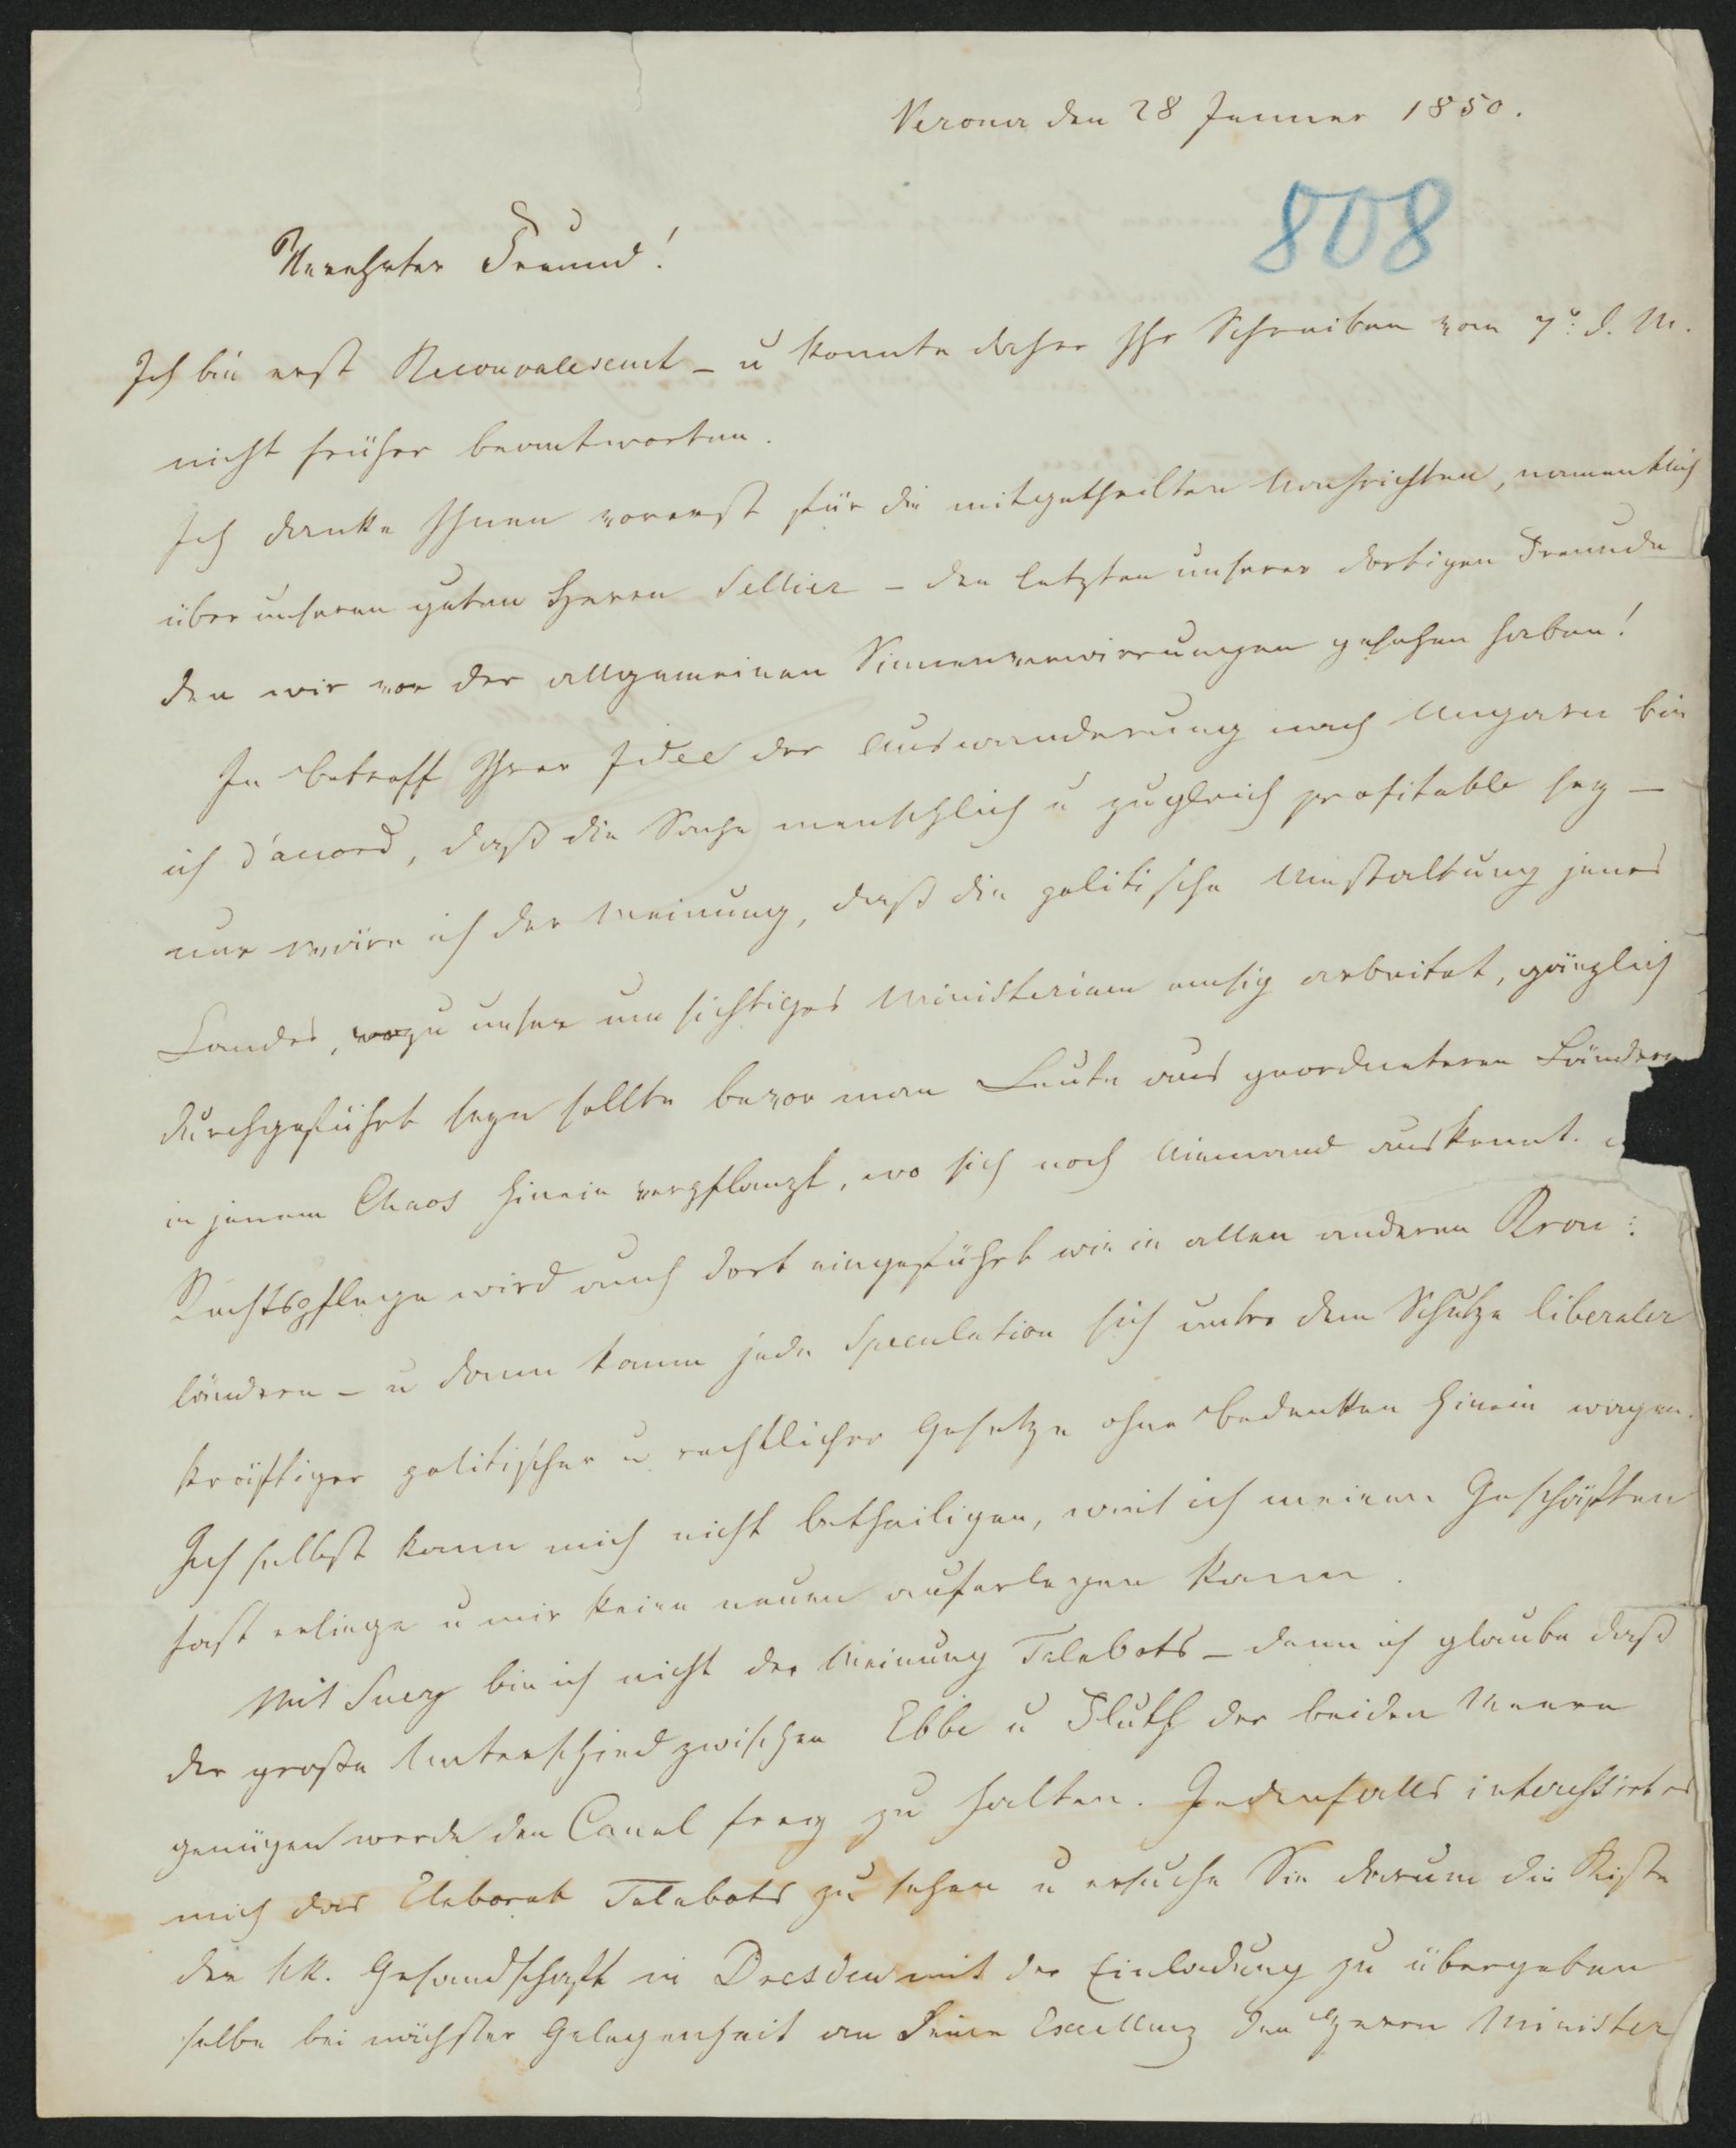 Verona den 28 Jenner 1850.
808
Verehrter Freund!
Ich bin erst Reconvalescent – u konnte daher Ihr Schreiben vom 7: d. M.
nicht früher beantworten.
Ich danke Ihnen vorerst für die mitgetheilten Nachrichten, namentlich
über unseren guten Herrn Sellier – den letzten unserer dortigen Freunde
den wir vor der allgemeinen Sinnenverwirrungen gesehen haben!
In Betreff Ihrer Idee der Auswanderung nach Ungarn bin
ich d'accord, daß die Sache menschlich u zugleich profitable sey –
nur wäre ich der Meinung, daß die politische Umstaltung jenes
Landes, wozu unser umsichtiges Ministerium emsig arbeitet, gänzlich
durchgeführt seyn sollte bevor man Leute aus geordneteren Ländern
in jenem Chaos hinein verpflanzt, wo sich noch Niemand auskennt.
Rechtspflege wird auch dort eingeführt wie in allen anderen Kron:
ländern – u dann kann jede Speculation sich unter dem Schutze liberaler
kräftiger politischer u rechtlicher Gesetze ohne Bedenken hinein wagen.
Ich selbst kann mich nicht betheiligen, weil ich meinen Geschäften
fast erliege u mir keine neuen auferlegen kann.
Mit Suez bin ich nicht der Meinung Talabots – denn ich glaube daß
der große Unterschied zwischen Ebbe u Fluth der beiden Meere
genügen werde den Canal frey zu halten. Jedenfalls interessirt es
mich das Elaborat Talabots zu sehen u ersuche Sie darum die Kiste
der kk. Gesandschaft in Dresden mit der Einladung zu übergeben
selbe bei nächster Gelegenheit an Seine Excellenz den Herrn Minister